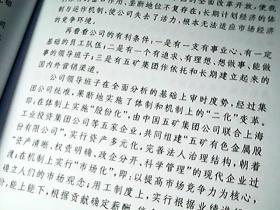 制与运作机制、垄断地位不复存在；长期计划经济的体
系，使公司失去了活力，根本无法适应市场经济
的竞争环境。
再费看公司的有利条件：一是有一支有事业心、有一定
基础的员工队伍；二是有一个有追求、有理想、想做事、能做
事的领导班子；三是有五矿集团作依托和长期建立起来的
国内外营销渠道。
公司领导班子在全面分析的基础上审时度势，经过集
团公司批准，果断地实施了体制和机制上的“二化”变革。
即：在体制上实施“股份化”，由中国五矿集团公司联合上海
工业投资集团公司等五家企业，共同组建“五矿有色金属股
份有限公司”，实行资产多元化，完善法人治理结构，朝着
“资产清晰、权责明确、政企分开、科学管理”的现代企业过
渡；在机制上实行“市场化”，即：以提高市场竞争力为核心，
确立人们的市场观念；用工制度上，实行根据业绩
能上能下，根据贡献定薪酬